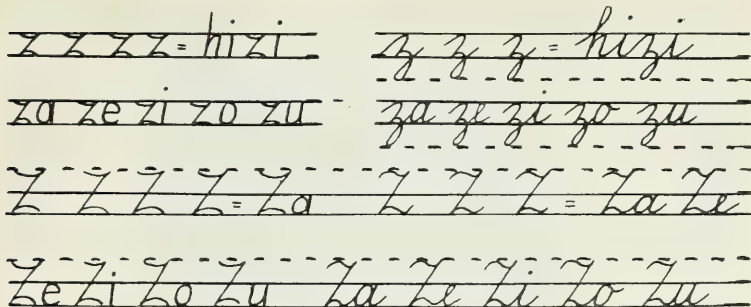 z z z z = hizi z z z = hizi
za ze zi zo zu za ze zi zo zu
Z Z Z Z = Za Z Z Z = Za Ze
Ze Zi Zo Zu Za Ze Zi Zo Zu